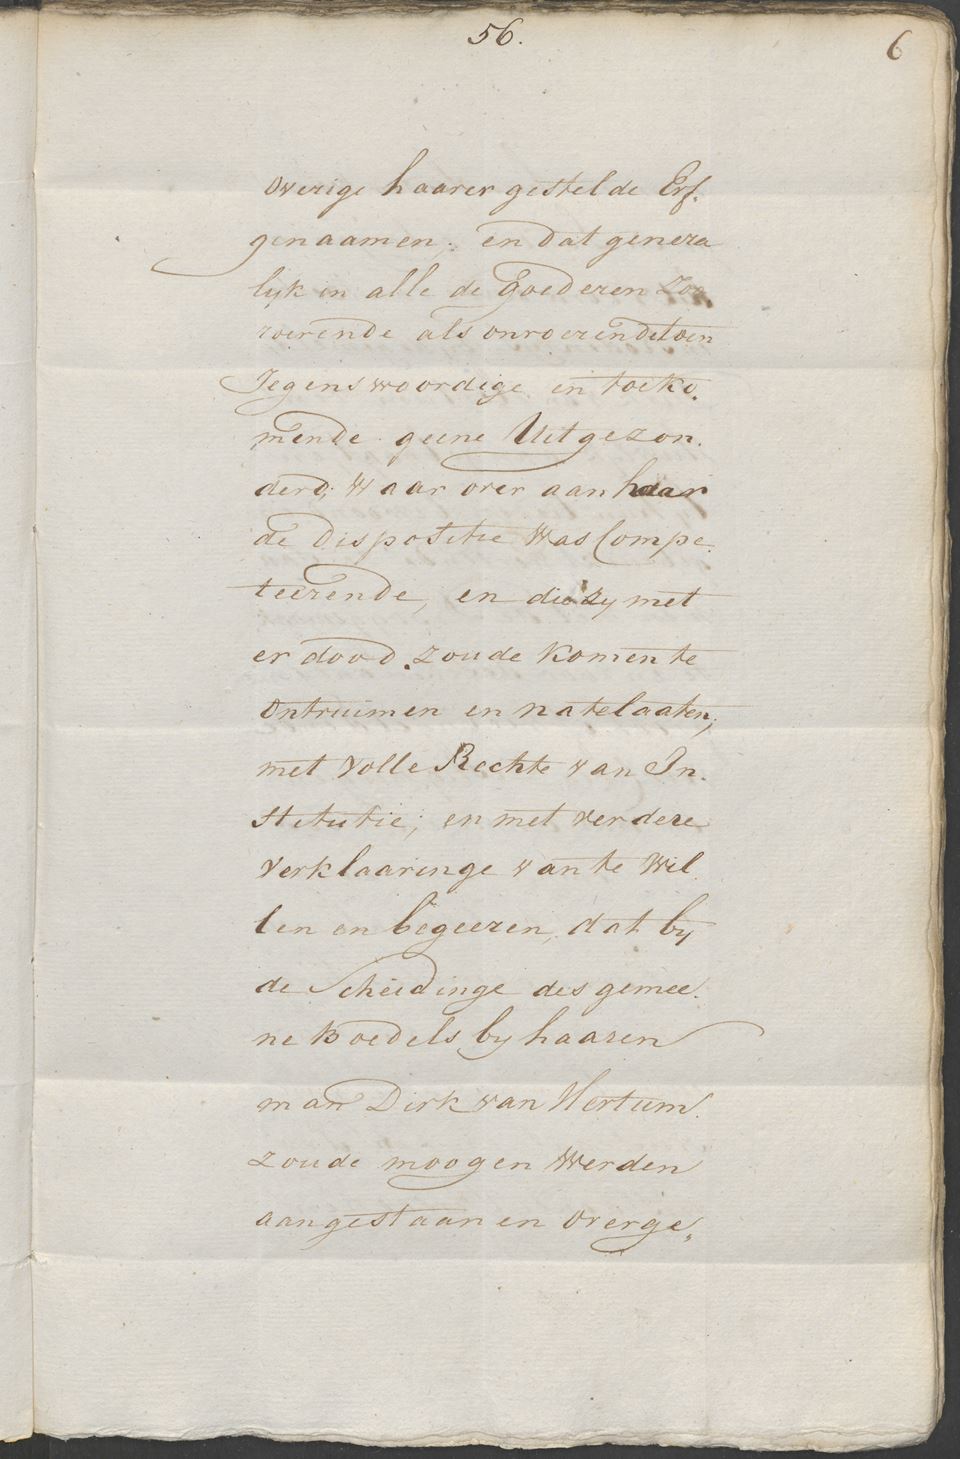 56.
6
overige haarer gestelde Erf.
genaamen, en dat genera
lyk in alle de Goederen Zoo
roerende als onroerende toen
Jegenswoordige en toeko.
mende geene Uitgezon.
derd; Waar over aan haar
de Dispositie was Compe.
teerende, en die zy met
er dood. zoude komen te
Ontruimen en natelaaten;
met volle Rechte van In.
stitutie; en met verdere
verklaaringe van te Wil
len en begeeren, dat by
de Scheidinge des gemee.
ne Boedels by haaren
man Dirk van Hertum.
zoude moogen Werden
aangestaan en overge„